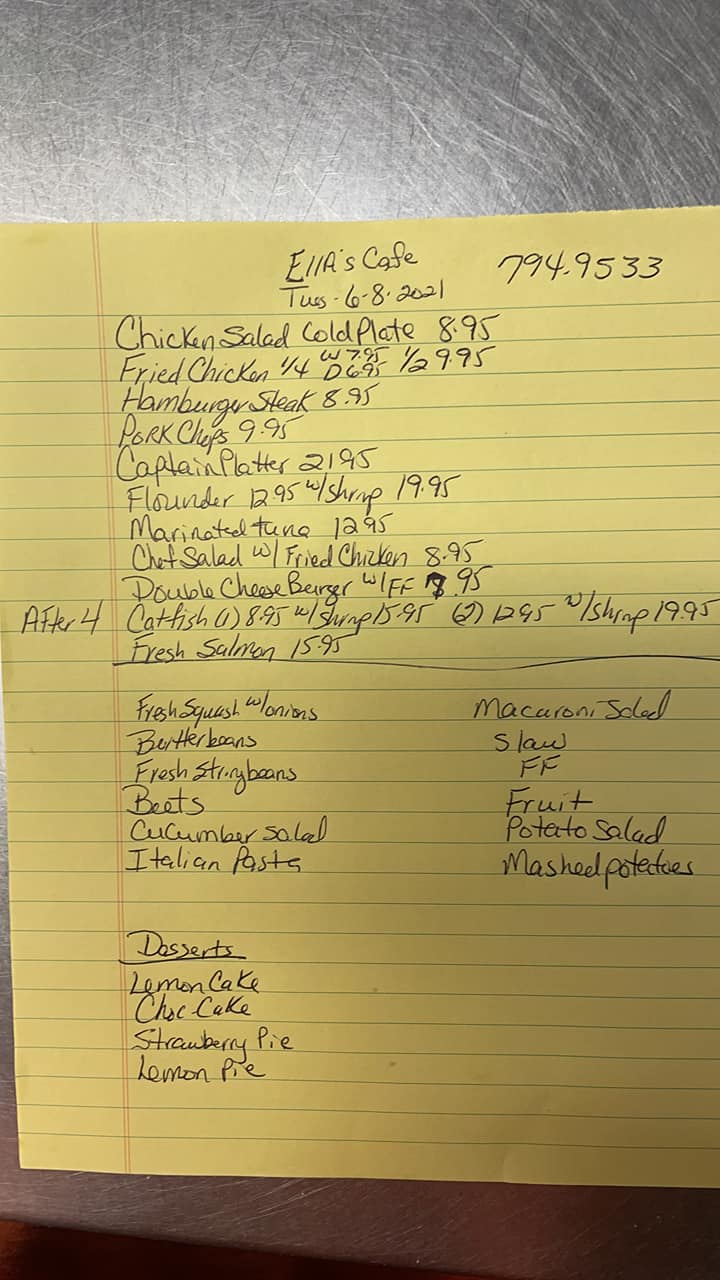 Ella's Cafe 794.9533
Tues. 6-8-2021
Chicken Salad Cold Plate 8.95
Fried Chicken 1/4 W 7.95 D 6.95 1/2 9.95
Hamburger Steak 8.95
Pork Chops 9.95
Captain Platter 2195
Flounder 12.95 w/shrmp 19.95
Marinated tuna 1295
Chef Salad w/ Fried Chicken 8.95
Double Cheese Beurger w/FF 8.95
After 4 Catfish (1) 8.95 w/shrmp 15.95 (2) 1295 w/shrmp 19.95
Fresh Salmon 15.95
Fresh Squash w/onions Macaroni Salad
Butterbeans Slaw
Fresh Stringbeans FF
Beets Fruit
Cucumber salad Potato Salad
Italian Pasta Mashed potatoes
Desserts
Lemon Cake
Choc-Cake
Strawberry Pie
Lemon Pie